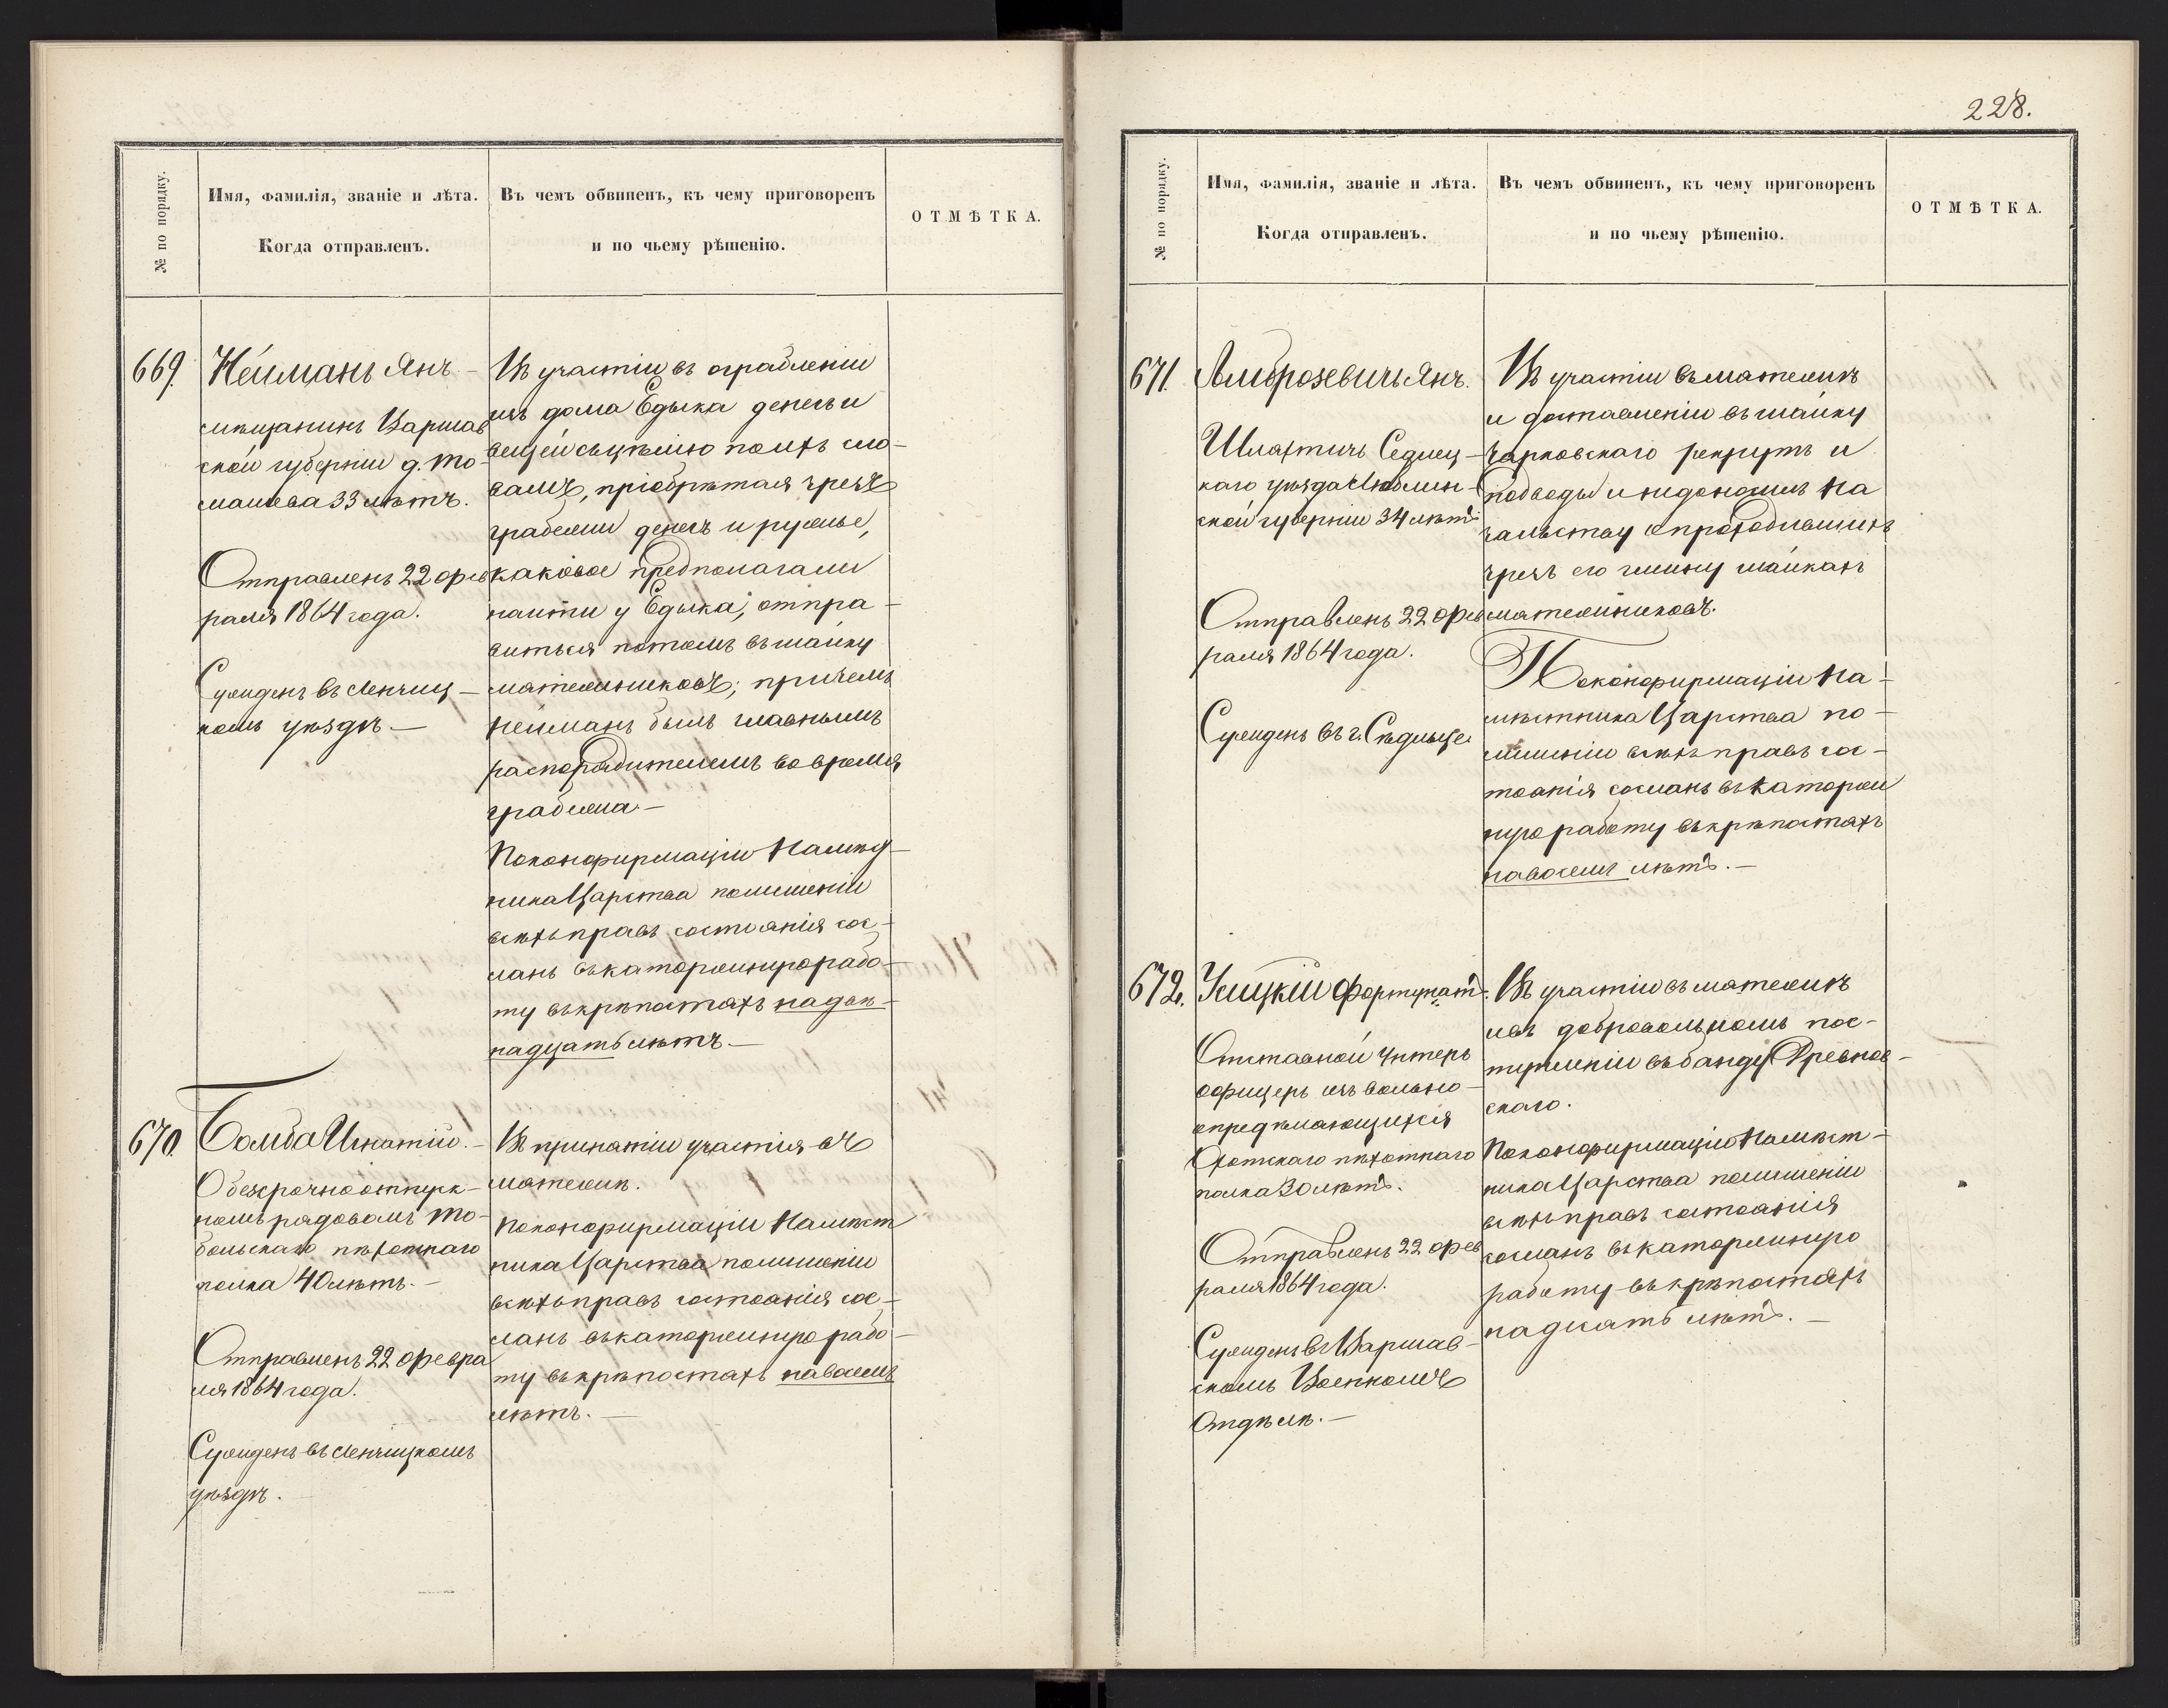 № по порядку.
Имя, фамилія, званіе и лѣта.
Когда отправленъ.
Въ чемъ обвиненъ, къ чему приговоренъ
и по чьему рѣшенію.
ОТМѢТКА.
669.
Нейманъ Янъ –
мѣщанинъ Варшав
ской губерніи д. То-
машева 33 лѣтъ.
Отправленъ 22 фев
раля 1864 года.
Сужденъ въ Ленчиц–
комъ уѣздѣ. —
Въ участіи въ ограбленіи
изъ дома Едыка денегъ и
вещей съ цѣлію
приобрѣтая чрезъ
грабежи денегъ и ружье,
каковое предполагали
найти у Едыка, отпра–
виться потомъ въ шайку
мятежниковъ; причемъ
Нейманъ былъ главнымъ
распорядителемъ во время
грабежа. —
По конфирмаціи Намѣст–
ника Царства по лишеніи
всѣхъ правъ состоянія сос–
ланъ въ каторжную рабо–
ту въ крѣпостяхъ на двѣ–
надцать лѣтъ. —
670.
Бомба Игнатій. –
Обезсрочноотпуск–
номъ рядовомъ То–
больскаго пѣхотнаго
полка 40 лѣтъ. –
Отправленъ 22 февра
ля 1864 года.
Сужденъ въ Ленчицкомъ
уѣздѣ.
Въ принятіи участія въ
мятежѣ.
По конфирмаціи Намѣст
ника Царства по лишеніи
всѣхъ правъ состоянія сос–
ланъ въ каторжную рабо–
ту въ крѣпостяхъ на восемь
лѣтъ. —
228.
№ по порядку.
Имя, фамилія, званіе и лѣта.
Когда отправленъ.
Въ чемъ обвиненъ, къ чему приговоренъ
и по чьему рѣшенію.
ОТМѢТКА.
671.
Амброзевичъ Янъ.
Шляхтичъ Седлец–
каго уѣзда Люблин–
ской губерніи 34 лѣтъ
Отправленъ 22 фев
раля 1864 года.
Сужденъ въ г. Сѣдльце
Въ участіи въ мятежѣ
и доставленіи въ шайку
рекрутъ и
подводы и недоносилъ На
чальству о проходившихъ
чрезъ его гмину шайкахъ
мятежниковъ.
По конфирмаціи На–
мѣстника Царства по–
лишеніи всѣхъ правъ сос–
тоянія сосланъ въ каторж
ную работу въ крѣпостяхъ
на восемь лѣтъ. —
672.
Фортунатъ.
Отставной Унтеръ
офицеръ изъ вольно
опредѣляющихся
пѣхотнаго
полка 30 лѣтъ.
Отправленъ 22 фев
раля 1864 года.
Сужденъ въ Варшав–
скомъ Военномъ
Отдѣлѣ. —
Въ участіи въ мятежѣ
и въ добровольномъ пос–
тупленіи въ банду Древнов–
скаго.
По конфирмаціи Намѣст–
ника Царства по лишеніи
всѣхъ правъ состоянія
сосланъ въ каторжную
работу въ крѣпостяхъ
на десять лѣтъ. —